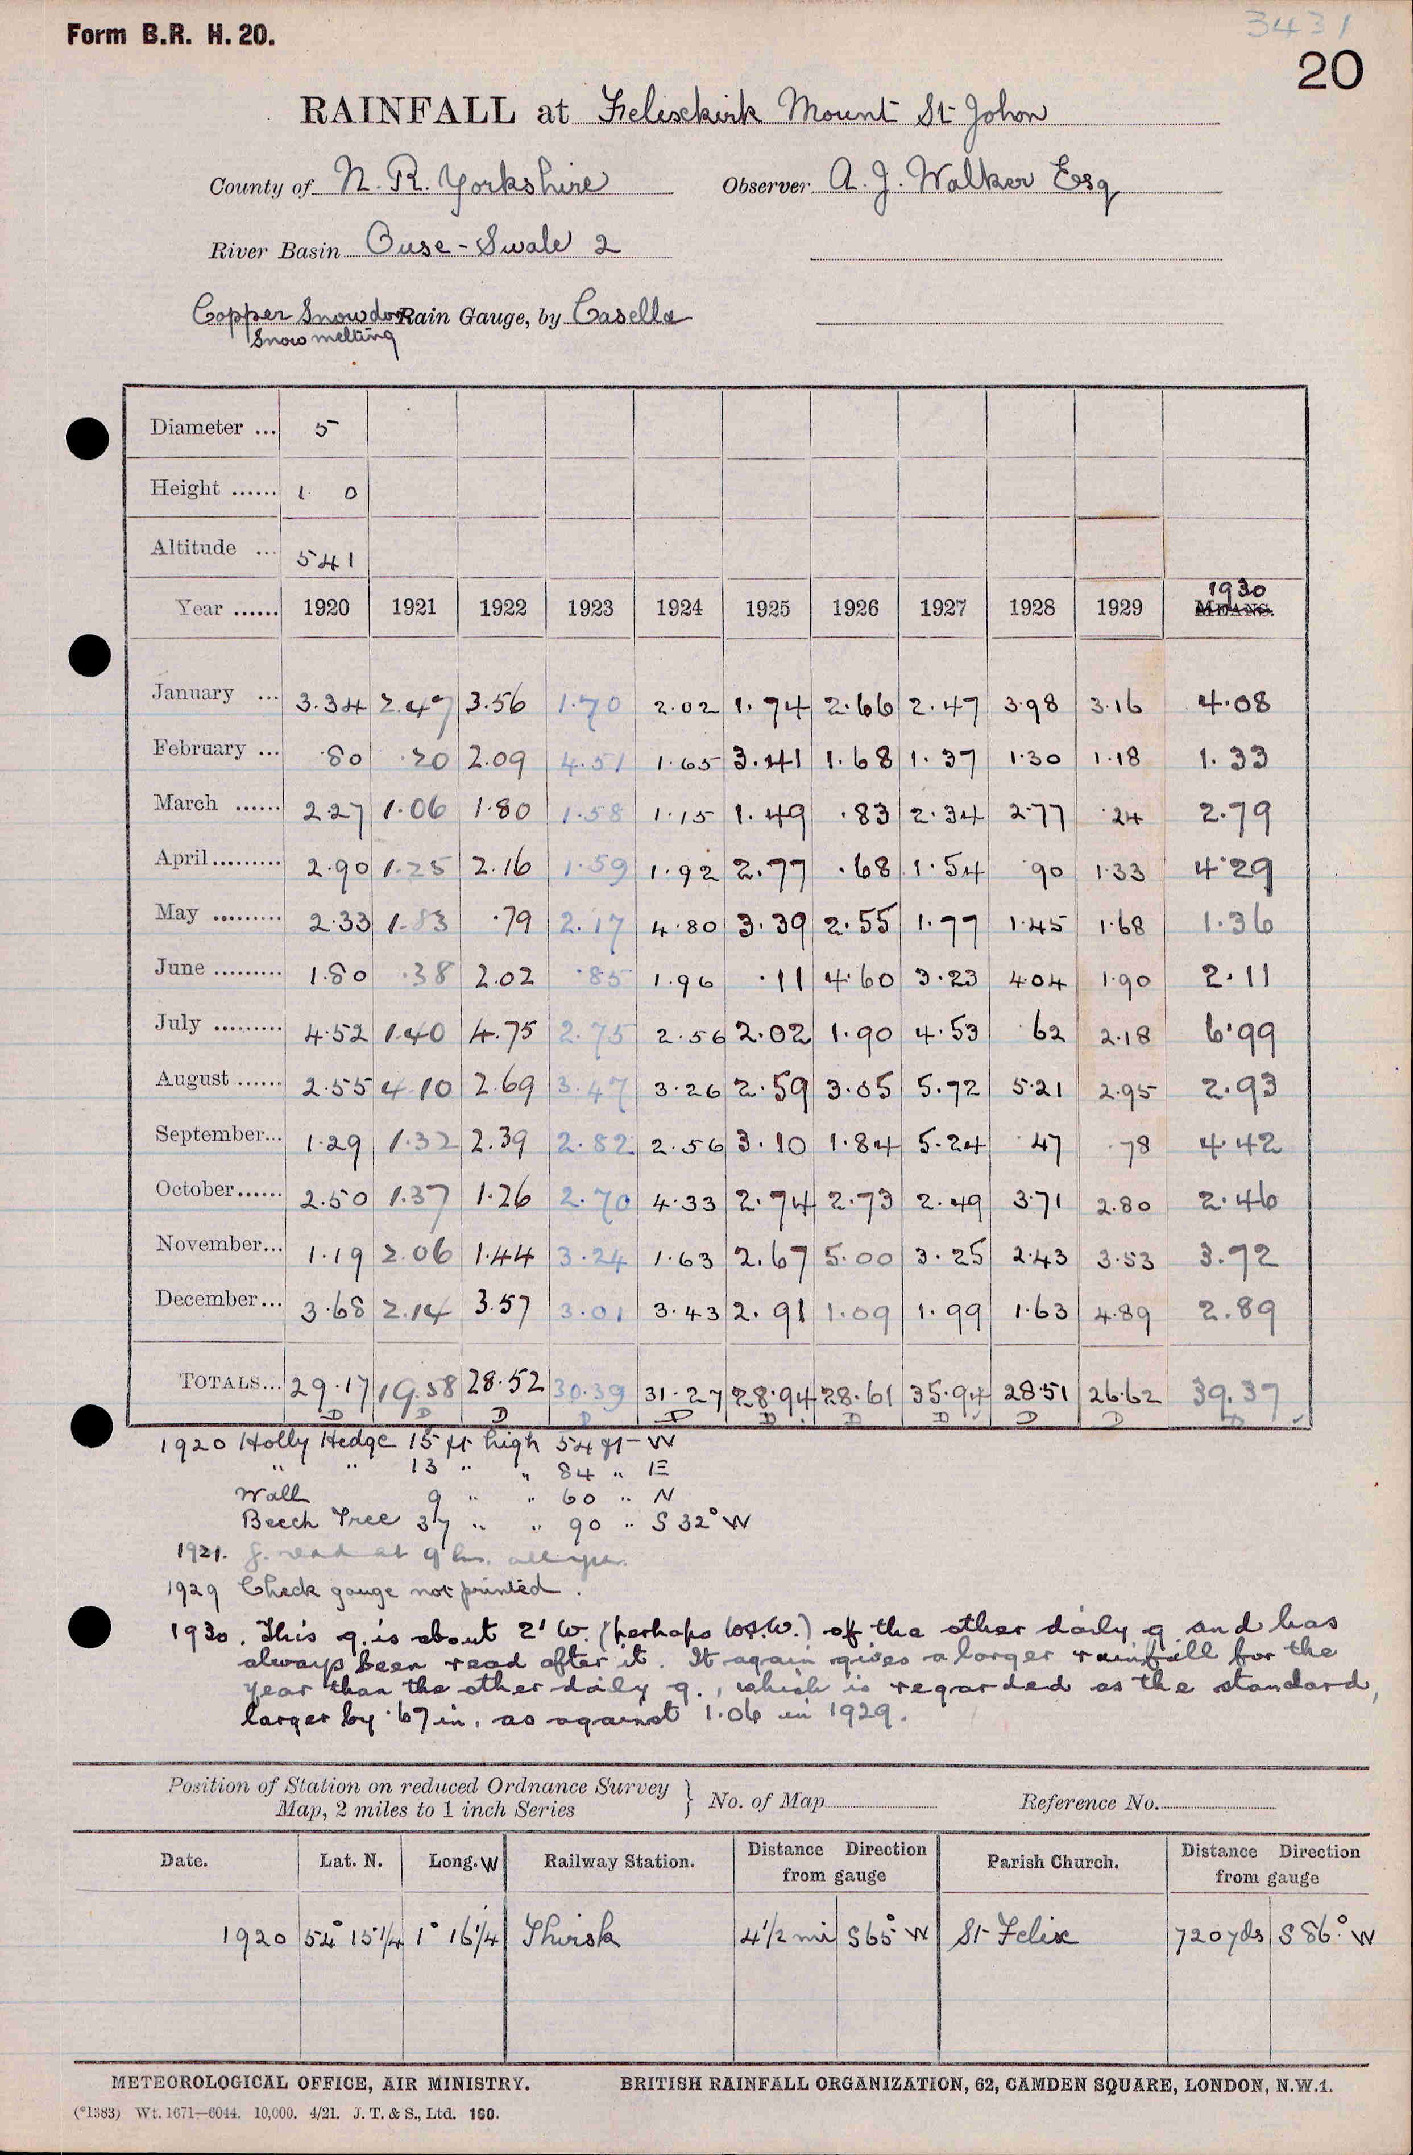 3431
Form B.R. H. 20.
20
RAINFALL at Felixkirk Mount St John
County of N. R. Yorkshire Observer A. J. Walker Esq
River Basin Ouse - Swale 2
Copper Snowdon Rain Gauge, by Casella
Snow melting
Diameter ... 5
Height ...... 1 0
Altitude ... 541
Year ...... 1920 1921 1922 1923 1924 1925 1926 1927 1928 1929 1930 MEANS.
January ... 3.34 2.47 3.56 1.70 2.02 1.74 2.66 2.47 3.98 3.16 4.08
February ... .80 .20 2.09 4.51 1.65 3.41 1.68 1.37 1.30 1.18 1.33
March ...... 2.27 1.06 1.80 1.58 1.15 1.49 .83 2.34 2.77 .24 2.79
April ......... 2.90 1.25 2.16 1.59 1.92 2.77 .68 1.54 .90 1.33 4.29
May ......... 2.33 1.83 .79 2.17 4.80 3.39 2.55 1.77 1.45 1.68 1.36
June ......... 1.80 .38 2.02 .85 1.96 .11 4.60 3.23 4.04 1.90 2.11
July ......... 4.52 1.40 4.75 2.75 2.56 2.02 1.90 4.53 .62 2.18 6.99
August ...... 2.55 4.10 2.69 3.47 3.26 2.59 3.05 5.72 5.21 2.95 2.93
September... 1.29 1.32 2.39 2.82 2.56 3.10 1.84 5.24 .47 .78 4.42
October...... 2.50 1.37 1.26 2.70 4.33 2.74 2.73 2.49 3.71 2.80 2.46
November... 1.19 2.06 1.44 3.24 1.63 2.67 5.00 3.25 2.43 3.53 3.72
December... 3.68 2.14 3.57 3.01 3.43 2.91 1.09 1.99 1.63 4.89 2.89
TOTALS... 29.17 19.58 28.52 30.39 31.27 28.94 28.61 35.94 28.51 26.62 39.37
D D D D D D D D D D D
1920 Holly Hedge 15 ft high 54 ft W
" " 13 " " 84 " E
Wall 9 " " 60 " N
Beech Tree 37 " " 90 " S 32° W
1921. g. read at 9 hrs. all yr.
1929 Check gauge not printed.
1930. This g. is about 2' W. (perhaps W.S.W.) of the other daily g and has
always been read after it. It again gives a larger rainfall for the
year than the other daily g., which is regarded as the standard,
larger by .67 in. as against 1.06 in 1929.
Position of Station on reduced Ordnance Survey
Map, 2 miles to 1 inch Series } No. of Map Reference No.
Date. Lat. N. Long. W Railway Station. Distance Direction from gauge Parish Church. Distance Direction from gauge
1920 54° 15 1/4 1° 16 1/4 Thirsk 4 1/2 mi S 65° W St Felix 720 yds S 86° W
METEOROLOGICAL OFFICE, AIR MINISTRY. BRITISH RAINFALL ORGANIZATION, 62, CAMDEN SQUARE, LONDON, N.W.1.
(*1383) Wt. 1671—6044. 10,000. 4/21. J. T. & S., Ltd. 160.